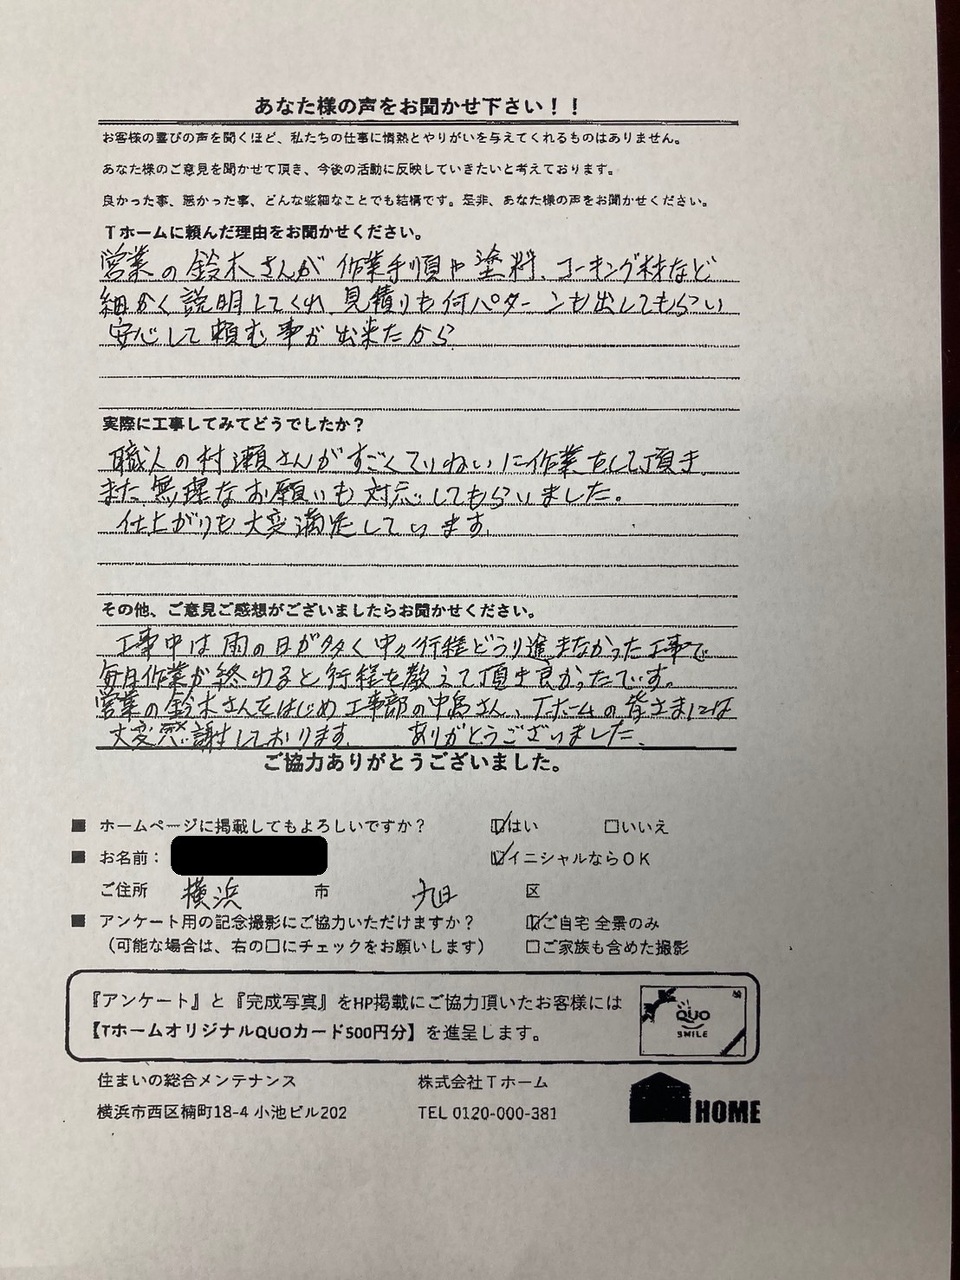 あなた様の声をお聞かせ下さい！！
お客様の喜びの声を聞くほど、私たちの仕事に情熱とやりがいを与えてくれるものはありません。
あなた様のご意見を聞かせて頂き、今後の活動に反映していきたいと考えております。
良かった事、悪かった事、どんな些細なことでも結構です。是非、あなた様の声をお聞かせください。
Ｔホームに頼んだ理由をお聞かせください。
営業の鈴木さんが作業手順や塗料、コーキング材など
細かく説明してくれ、見積りも何パターンも出してもらい
安心して頼む事が出来たから
実際に工事してみてどうでしたか？
職人の村瀬さんがすごくていねいに作業をして頂き
また無理なお願いも対応してもらいました。
仕上がりも大変満足しています。
その他、ご意見ご感想がございましたらお聞かせください。
工事中は雨の日が多く中々行程どうり進まなかった工事で
毎日作業が終わると行程を教えて頂き良かったです。
営業の鈴木さんをはじめ工事部の中島さん、Tホームの皆さまには
大変感謝しております。 ありがとうございました。
ご協力ありがとうございました。
■ ホームページに掲載してもよろしいですか？ ☑はい □いいえ
■ お名前： ☑イニシャルならＯＫ
ご住所 横浜 市 旭 区
■ アンケート用の記念撮影にご協力いただけますか？ ☑ご自宅 全景のみ
（可能な場合は、右の□にチェックをお願いします） □ご家族も含めた撮影
『アンケート』と『完成写真』をHP掲載にご協力頂いたお客様には
【TホームオリジナルQUOカード500円分】を進呈します。
QUO
SMILE
住まいの総合メンテナンス 株式会社Ｔホーム
横浜市西区楠町18-4 小池ビル202 TEL 0120-000-381
HOME